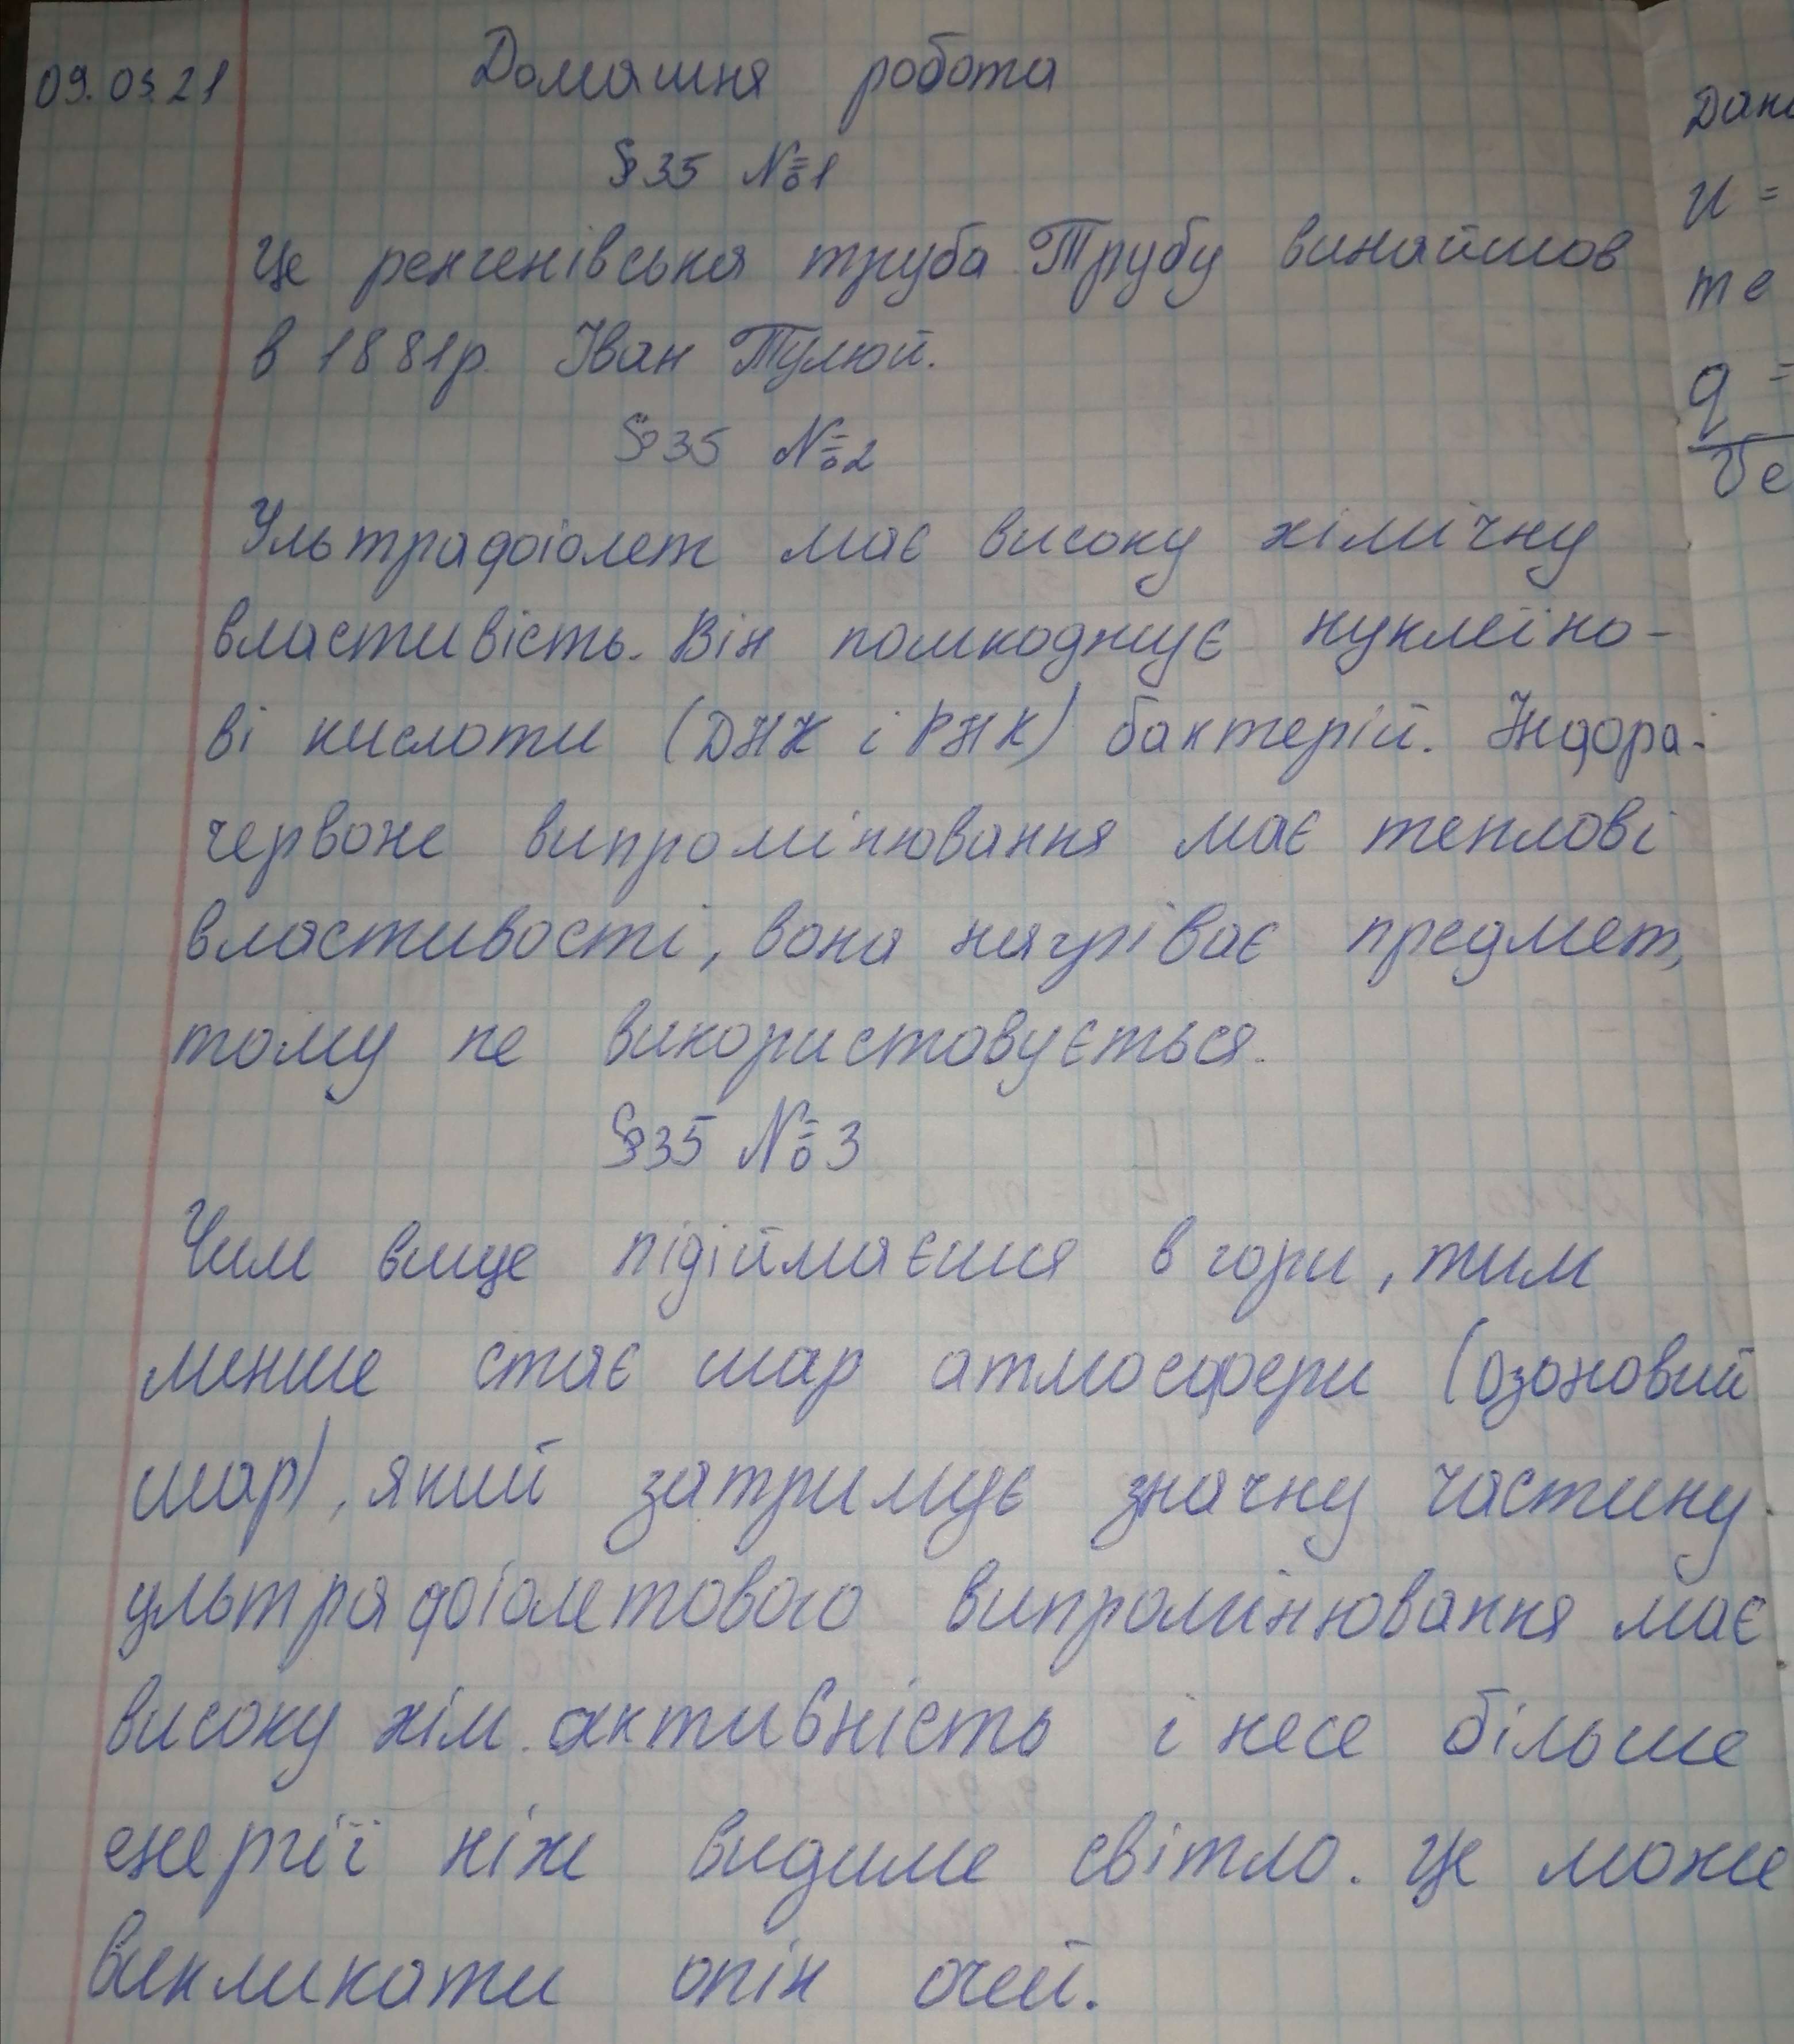 09.03.21 Домашня робота
§35 №1
Церенгенівська труба. Трубу винайшов
в 1881р. Іван Пулюй.
§35 №2
Ультрафіолет має високу хімічну
властивість. Він пошкоджує нуклеїно-
ві кислоти (ДНК і РНК) бактерій. Інфра-
червоне випромінювання має теплові
властивості, вона нагріває предмет,
тому не використовується.
§35 №3
Чим вище підіймаєшся в гори, тим
менше стає шар атмосфери (озоновий
шар), який затримує значну частину
ультрафіолетового випромінювання має
високу хім. активність і несе більше
енергії ніж видиме світло. Це може
викликати опік очей.
U =
те
q =